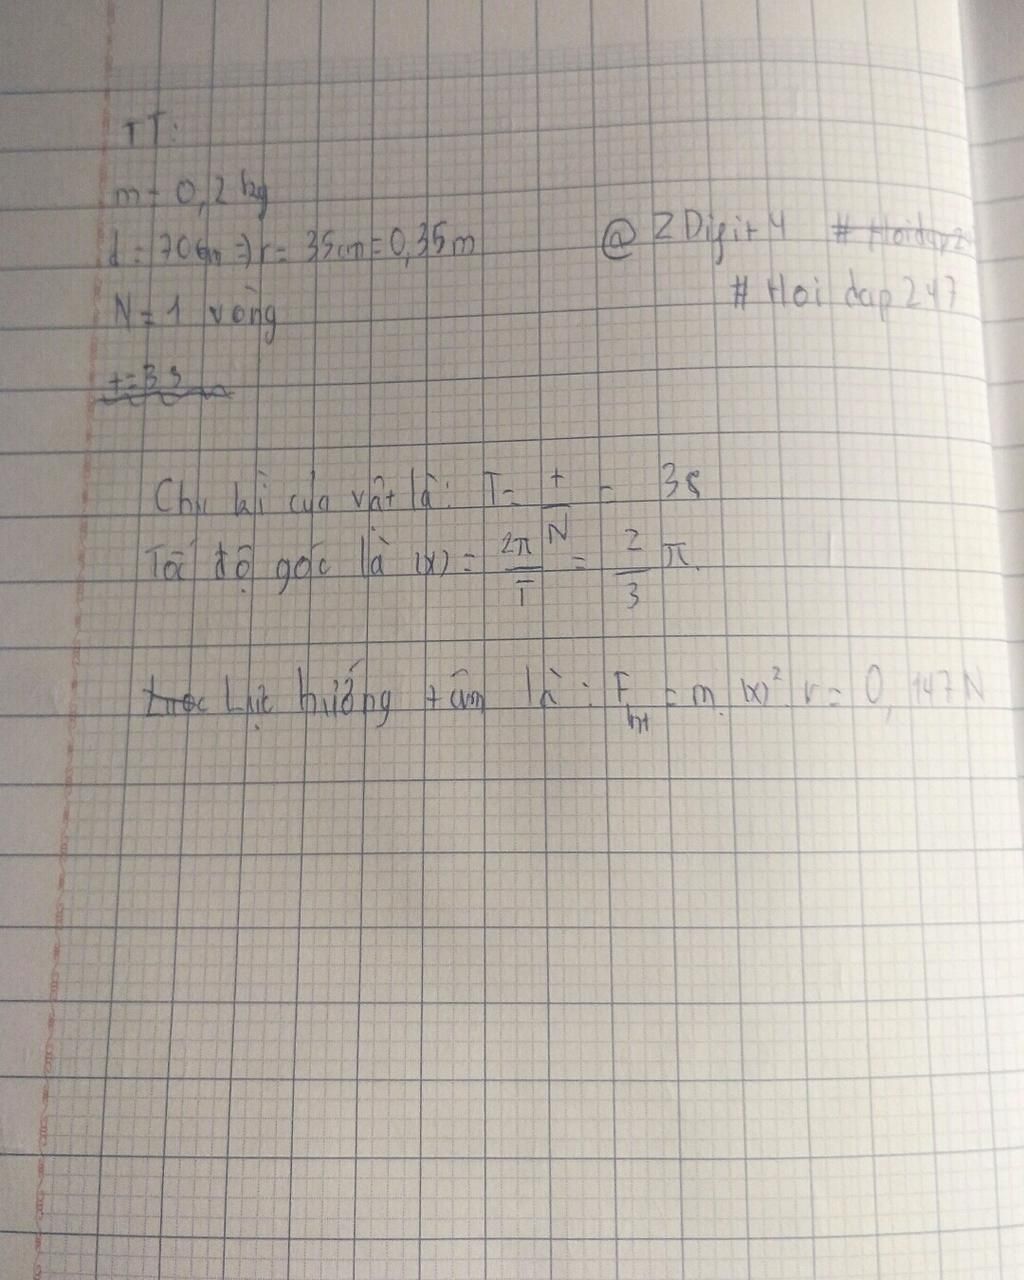 TT:
m = 0,2 kg
d = 70cm => r = 35cm = 0,35m
@ 2Digit4 # Hoidap24
N = 1 vòng
# Hoidap247
t = 3s
Chu kì của vật là: T = t/N = 3s
Tốc độ góc là ω = 2π/T = 2/3 π.
Lực hướng tâm là: Fht = m.ω².r = 0,147N